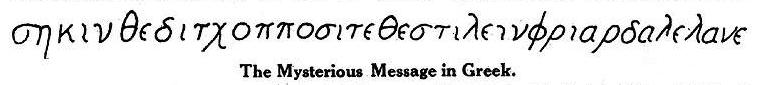 σηκινθεδιτχοπποσιτεθεστιλεινφριαρδαλελανε
The Mysterious Message in Greek.